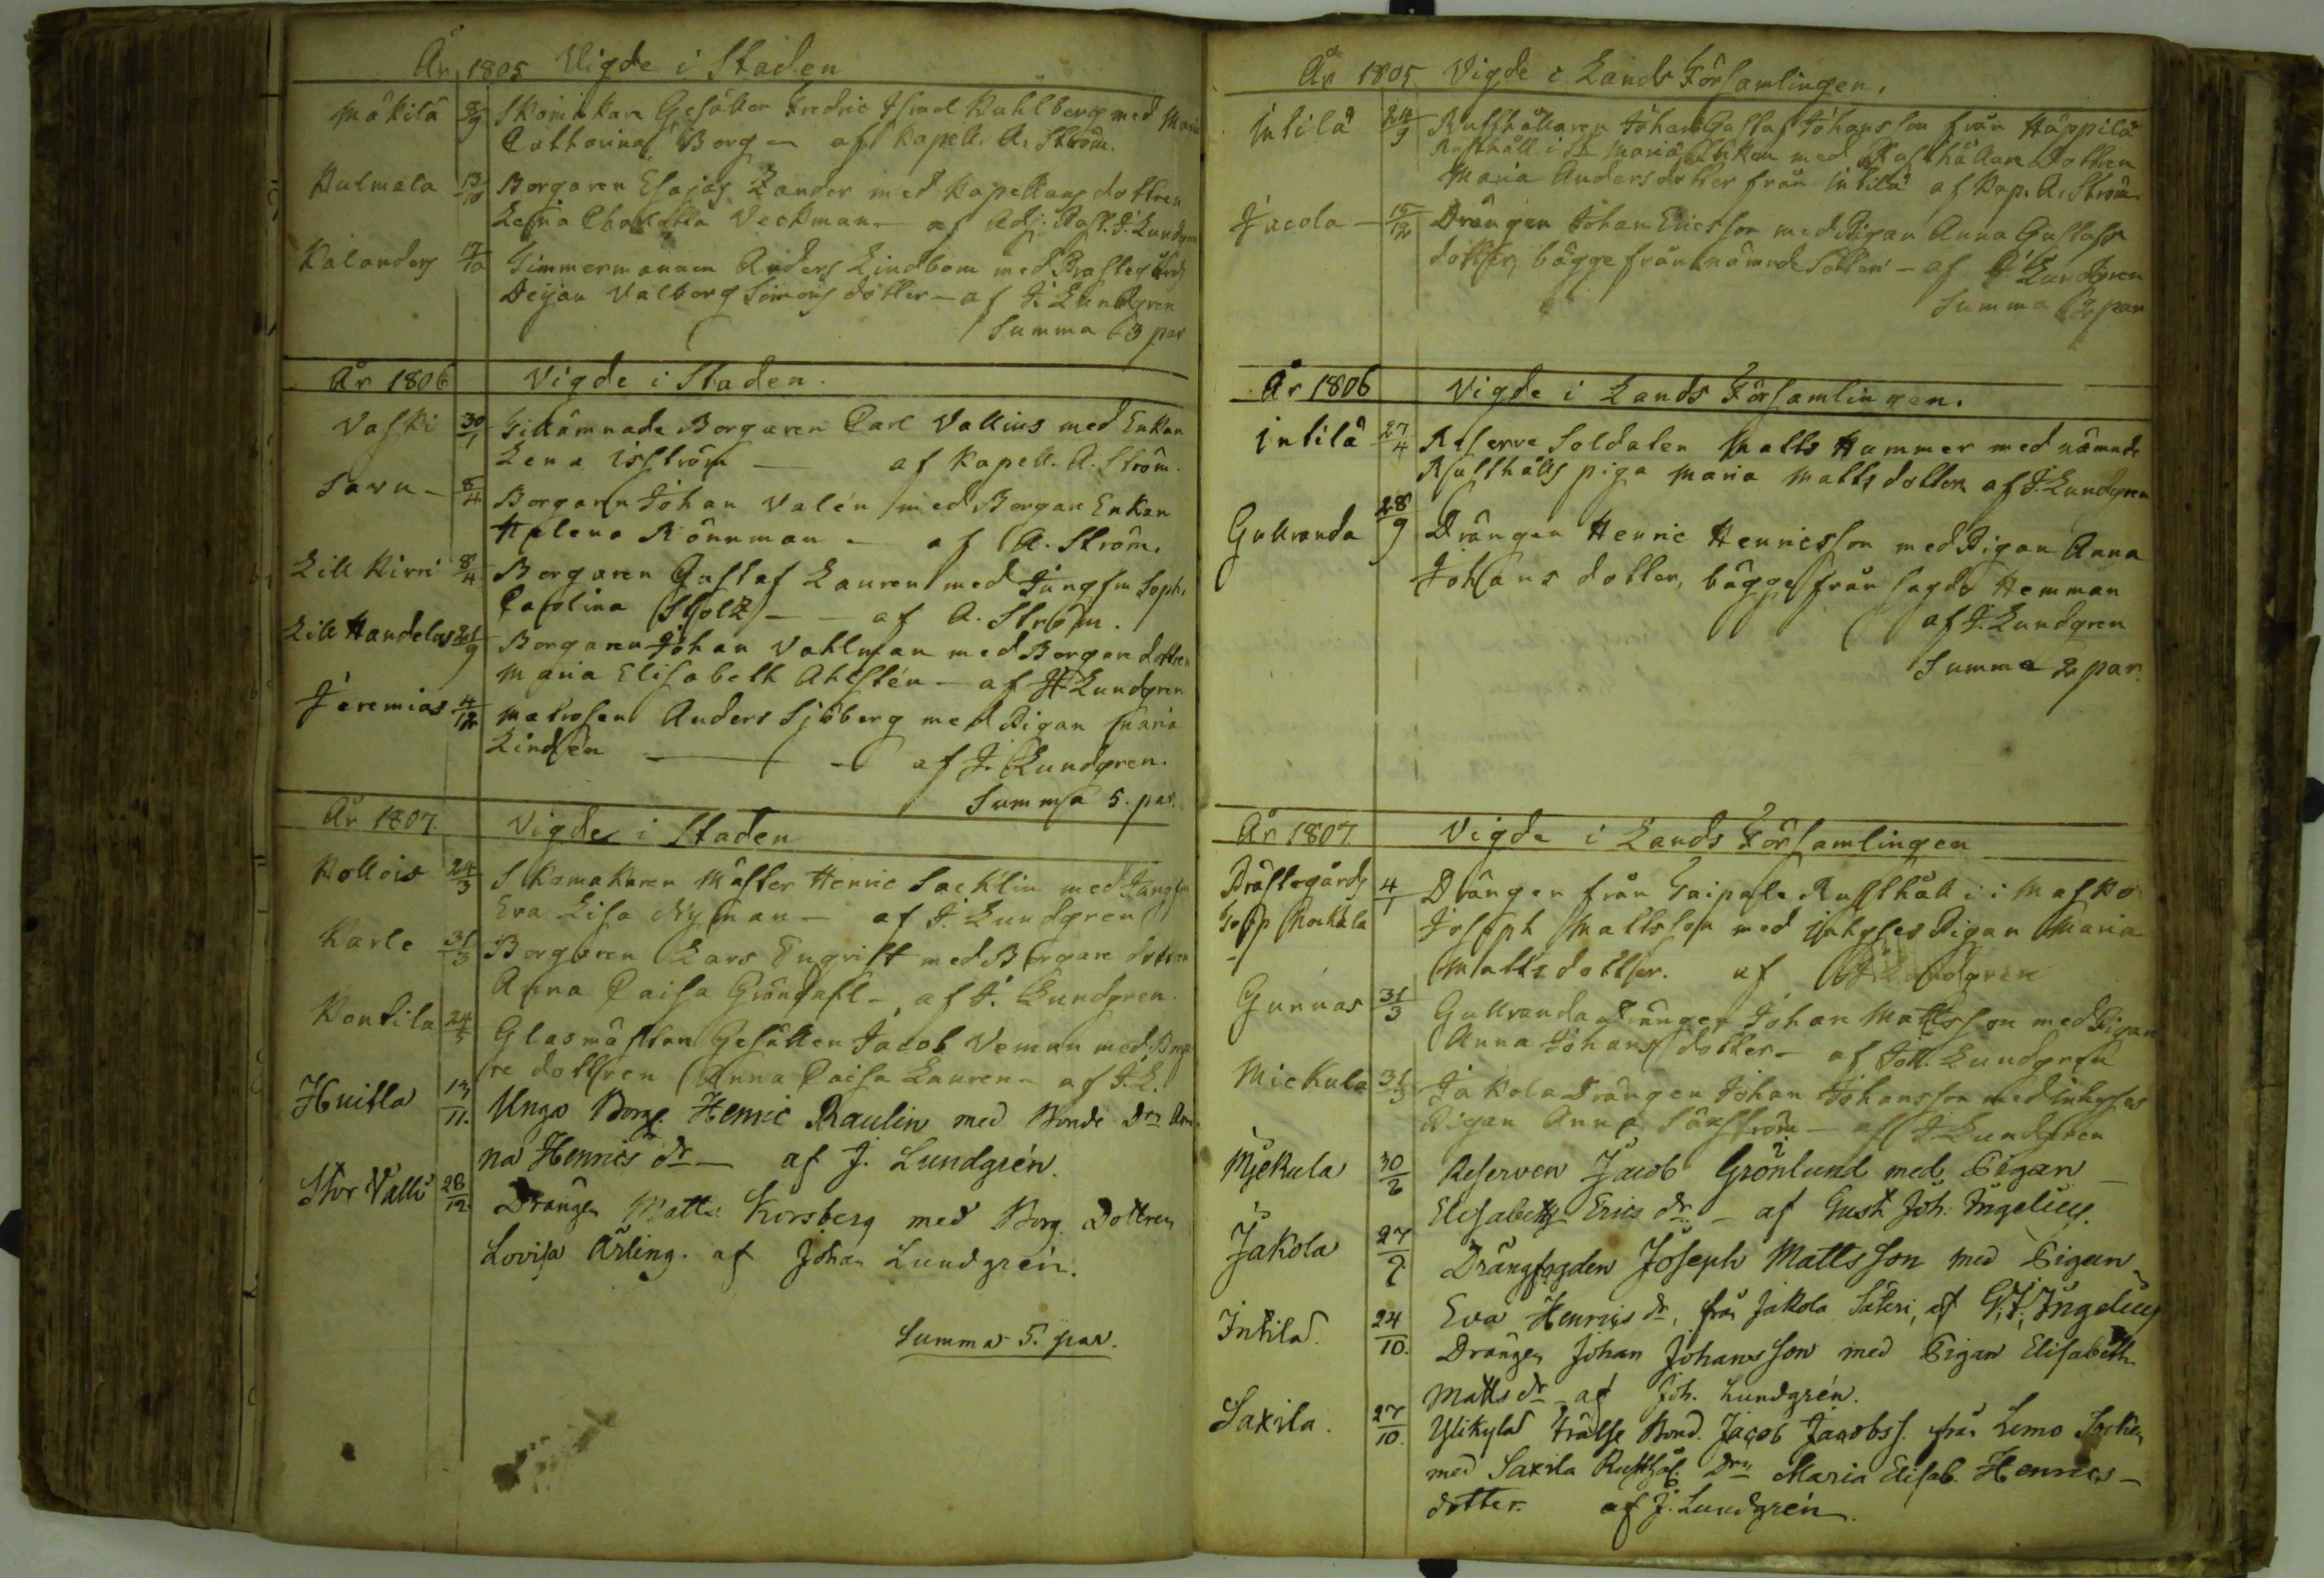 År 1805 Vigde i Staden
Mäkilä 8/9 Skomakare Gesällen Fredric Israel Kuhlberg med Maria
Catharina Berg — af Kapell. A. Ström.
Kulmala 13/10 Borgaren Esajas Zander med Kapellans dottren
Lena Charlotta Veckman — af Adj. Past. J. Lundgren
Kalanders 17/10 Timmermannen Anders Lindbom med Prästegårds
Deijan Valborg Simons dotter — af J. Lundgren
Summa 3 par
År 1806 Vigde i Staden.
Vaski 30/1 Tillämnade Borgaren Carl Vallius med Enkan
Lena Isström — af Kapell. A. Ström.
Savu — 8/4 Borgaren Johan Valén med Borgare Enkan
Helena Rönnman — af A. Ström.
Lill Kirri 8/4 Borgaren Gustaf Lauren med Jungfru Soph.
Carolina Stolz — — af A. Ström.
Lill Handelus 21/9 Borgaren Johan Vahlman med Borgare dottren
Maria Elisabeth Ahlstén — af J. Lundgren
Jeremias 4/12 Matrosen Anders Sjöberg med Pigan Maria
Lindén — — af J. Lundgren.
Summa 5. par.
År 1807. Vigde i Staden
Kollois 24/3 Skomakaren Mäster Henric Sacklin med Jungfru
Eva Lisa Nyman — af J. Lundgren
Karle 31/3 Borgaren Lars Engvist med Borgare dottren
Anna Caisa Gröndahl —, af J. Lundgren.
Kontila 24/5 Glasmästare Gesällen Jacob Veman med Borga
re dottren Anna Caisa Lauren — af J. L.
Huitla 13/11. Unga Borg. Henric Raulin med Bonde Dr. An
na Henrics dr — af J. Lundgrén.
Stor Valli 28/12 Drängen Matts Korsberg med Borg. Dottren
Lovisa Ärling. af Johan Lundgrén.
Summa 5. par.
År 1805 Vigde i Lands Församlingen.
Intilä 24/9 Rusthållaren Johan Gustaf Johansson från Häppilä
Rusthåll i St Mariæ Sokn med Rusthållare Dottren
Maria Anders dotter från Intilä af Kap. A. Ström
Jacola — 15/12 Drängen Johan Ericsson med Pigan Anna Gustafs
dotter, bägge från nämnde Säteri — af J. Lundgren
Summa 2 par
År 1806 Vigde i Lands Församlingen.
Intilä 27/4 Reserve Soldaten Matts Hammer med nämnde
Rusthålls piga Maria Matts dotter af J. Lundgren
Gullranda 28/9 Drängen Henric Henricsson med Pigan Anna
Johans dotter, bägge från sagde Hemman
af J. Lundgren
Summa 2 par.
År 1807. Vigde i Lands Församlingen
Prästegårds 4/1 Drängen från Taipale Rusthåll i Masko
Torp Joseph Mattsson med Inhyses Pigan Maria
Matts dotter. af J. Lundgren
Gunnas 31/3 Gullranda Drängen Johan Mattsson med Pigan
Anna Johans dotter — af Joh. Lundgren
Mickula 31/3 Jakola Drängen Johan Johansson med Inhyses
Pigan Anna Sönström — af J. Lundgren
Mickula 30/6 Reserven Jacob Grönlund med Pigan
Elisabeth Erics dr — af Gust. Joh. Ingelius.
Jakola 27/7 Drängfogden Joseph Mattsson med Pigan
Eva Henrics dr, frå Jakola Säteri, af G. J. Ingelius
Intilä. 24/10. Drängen Johan Johansson med Pigan Elisabeth
Matts dr — af Joh. Lundgrén.
Saxila. 27/10. Ylikylä Frälse Bond. Jacob Jacobss. frå Lemo Sockn
med Saxila Rusthål. Drn Maria Elisab. Henrics —
dotter. af J. Lundgrén.